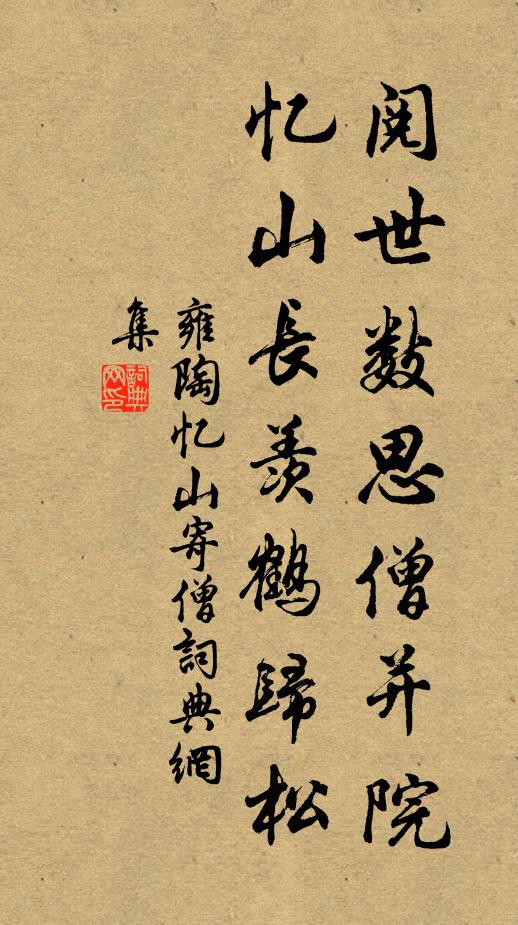 阅世数思僧并院
忆山长羡鹤归松
雍陶忆山寄僧詞典網
集
詞典
网印